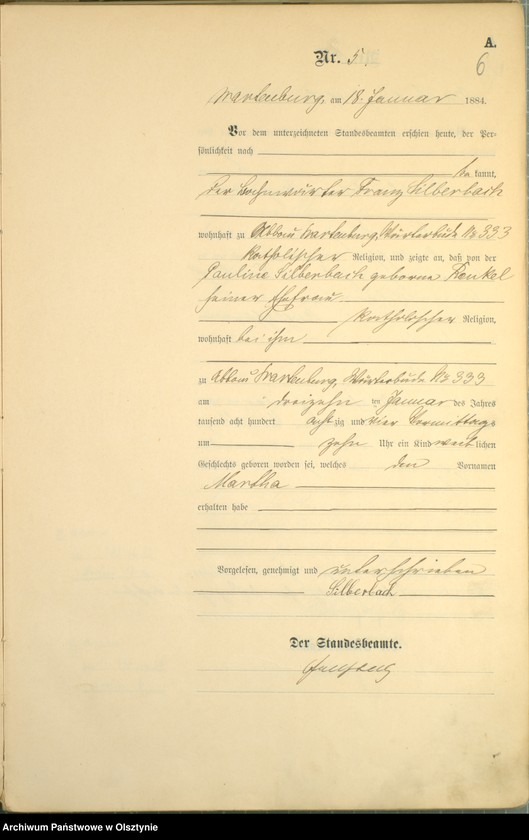 A.
Nr. 5.
6
Wartenburg, am 18. Januar 1884.
Vor dem unterzeichneten Standesbeamten erschien heute, der Per-
sönlichkeit nach
be kannt,
der Bahnwärter Franz Silberbach
wohnhaft zu Abbau Wartenburg, Wärterbude No 333
katholischer Religion, und zeigte an, daß von der
Pauline Silberbach geborne
seiner Ehefrau
katholischer Religion,
wohnhaft bei ihm
zu Abbau Wartenburg, Wärterbude No 333
am dreizehn ten Januar des Jahres
tausend acht hundert acht zig und vier Vormittags
um zehn Uhr ein Kind weib lichen
Geschlechts geboren worden sei, welches den Vornamen
Martha
erhalten habe
Vorgelesen, genehmigt und unterschrieben
Silberbach
Der Standesbeamte.
Archiwum Państwowe w Olsztynie